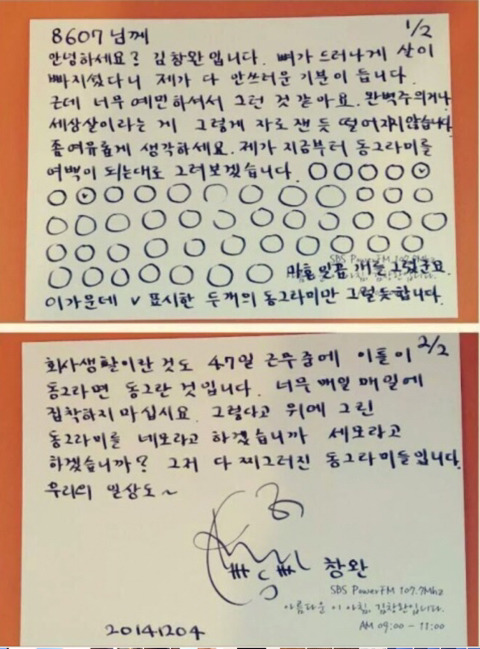 8607님께 1/2
안녕하세요? 김창완입니다. 뼈가 드러나게 살이
빠지셨다니 제가 다 안쓰러운 기분이 듭니다.
근데 너무 예민하셔서 그런 것 같아요. 완벽주의거나
세상살이라는 게 그렇게 자로 잰 듯 떨어지지않습니다.
좀 여유롭게 생각하세요. 제가 지금부터 동그라미를
여백이 되는대로 그려보겠습니다.
마흔일곱 개를 그렸군요.
SBS PowerFM 107.7Mhz
이가운데 v 표시한 두개의 동그라미만 그럴듯합니다.
회사생활이란것도 47일 근무중에 이틀이 2/2
동그라면 동그란 것입니다. 너무 매일매일에
집착하지 마십시요. 그렇다고 위에 그린
동그라미를 네모라고 하겠습니까 세모라고
하겠습니까? 그저 다 찌그러진 동그라미들입니다.
우리의 일상도~
창완
SBS PowerFM 107.7Mhz
아름다운 이 아침, 김창완입니다.
AM 09:00 - 11:00
20141204